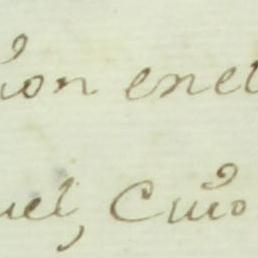 ion enel
uel, Cuio